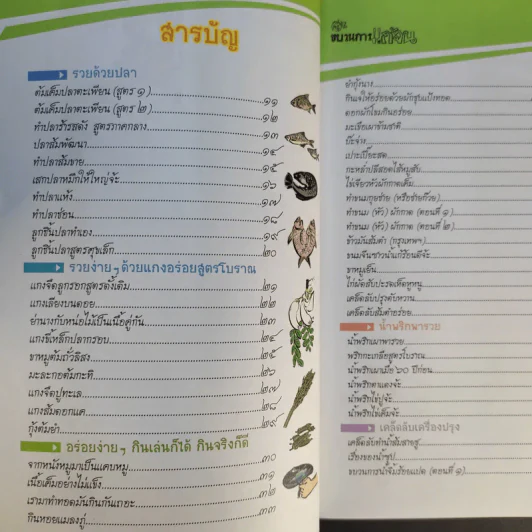 สารบัญ
รวยด้วยปลา
ต้มเค็มปลาตะเพียน (สูตร ๑) ๑๑
ต้มเค็มปลาตะเพียน (สูตร ๒) ๑๒
ทำปลาร้ารสดัง สูตรภาคกลาง ๑๓
ปลาส้มพัฒนา ๑๔
ทำปลาส้มขาย ๑๕
เสกปลาหมึกให้ใหญ่จ้ะ ๑๖
ทำปลาแห้ง ๑๗
ทำปลาช่อน ๑๘
ลูกชิ้นปลาทำเอง ๑๙
ลูกชิ้นปลาสูตรตุชเล็ก ๒๐
รวยง่ายๆ ด้วยแกงอร่อยสูตรโบราณ
แกงจืดลูกรอกสูตรดั้งเดิม ๒๑
แกงเลียงบนดอย ๒๒
ย่านางกับหน่อไม้เป็นเนื้อคู่กัน ๒๓
แกงขี้เหล็กปลากรอบ ๒๔
ขาหมูต้มถั่วลิสง ๒๕
มะละกอต้มกะทิ ๒๖
แกงจืดปูทะเล ๒๗
แกงส้มดอกแค ๒๘
กุ้งต้มยำ ๒๙
อร่อยง่ายๆ กินเล่นก็ได้ กินจริงก็ดี
จากหนังหมูมาเป็นแคบหมู ๓๐
เนื้อเค็มอย่างไม่แข็ง ๓๑
เรามาทำทอดมันกินกันเถอะ ๓๒
กินหอยแมลงภู่ ๓๓
ขบวนการแก้จน
ยำกุ้งนาง
กินแจ๋ให้อร่อยด้วยผักชุบแป้งทอด
ดอกผักโขมกินอร่อย
มะเขือเผาข้ามชาติ
บ๊ะจ่าง
ปอเปี๊ยะสด
กะหล่ำปลีสอดไส้หมูสับ
ไข่เจียวหัวผักกาดเค็ม
ทำขนมกุยช่าย (หรือช่ายก๊วย)
ทำขนม (หัว) ผักกาด (ตอนที่ ๑)
ทำขนม (หัว) ผักกาด (ตอนที่ ๒)
ข้าวมันส้มตำ (กรุงเทพฯ)
ขนมจีนซาวน้ำแก้ร้อนดีจ้ะ
ขาหมูเย็น
ไก่ผัดสับปะรดเห็ดหูหนู
เคล็ดลับปรุงตับหวาน
เคล็ดลับส้มตำอร่อย
น้ำพริกพารวย
น้ำพริกเผาพารวย
พริกกะเกลือสูตรโบราณ
น้ำพริกเผาเมื่อ ๖๐ ปีก่อน
น้ำพริกตาแดงจ้ะ
น้ำพริกไข่ปูจ้ะ
น้ำพริกไข่เค็มจ้ะ
เคล็ดลับเครื่องปรุง
เคล็ดลับทำน้ำส้มสายชู
เรื่องของน้ำซุป
ขบวนการน้ำจิ้มร้อยแปด (ตอนที่ ๑)